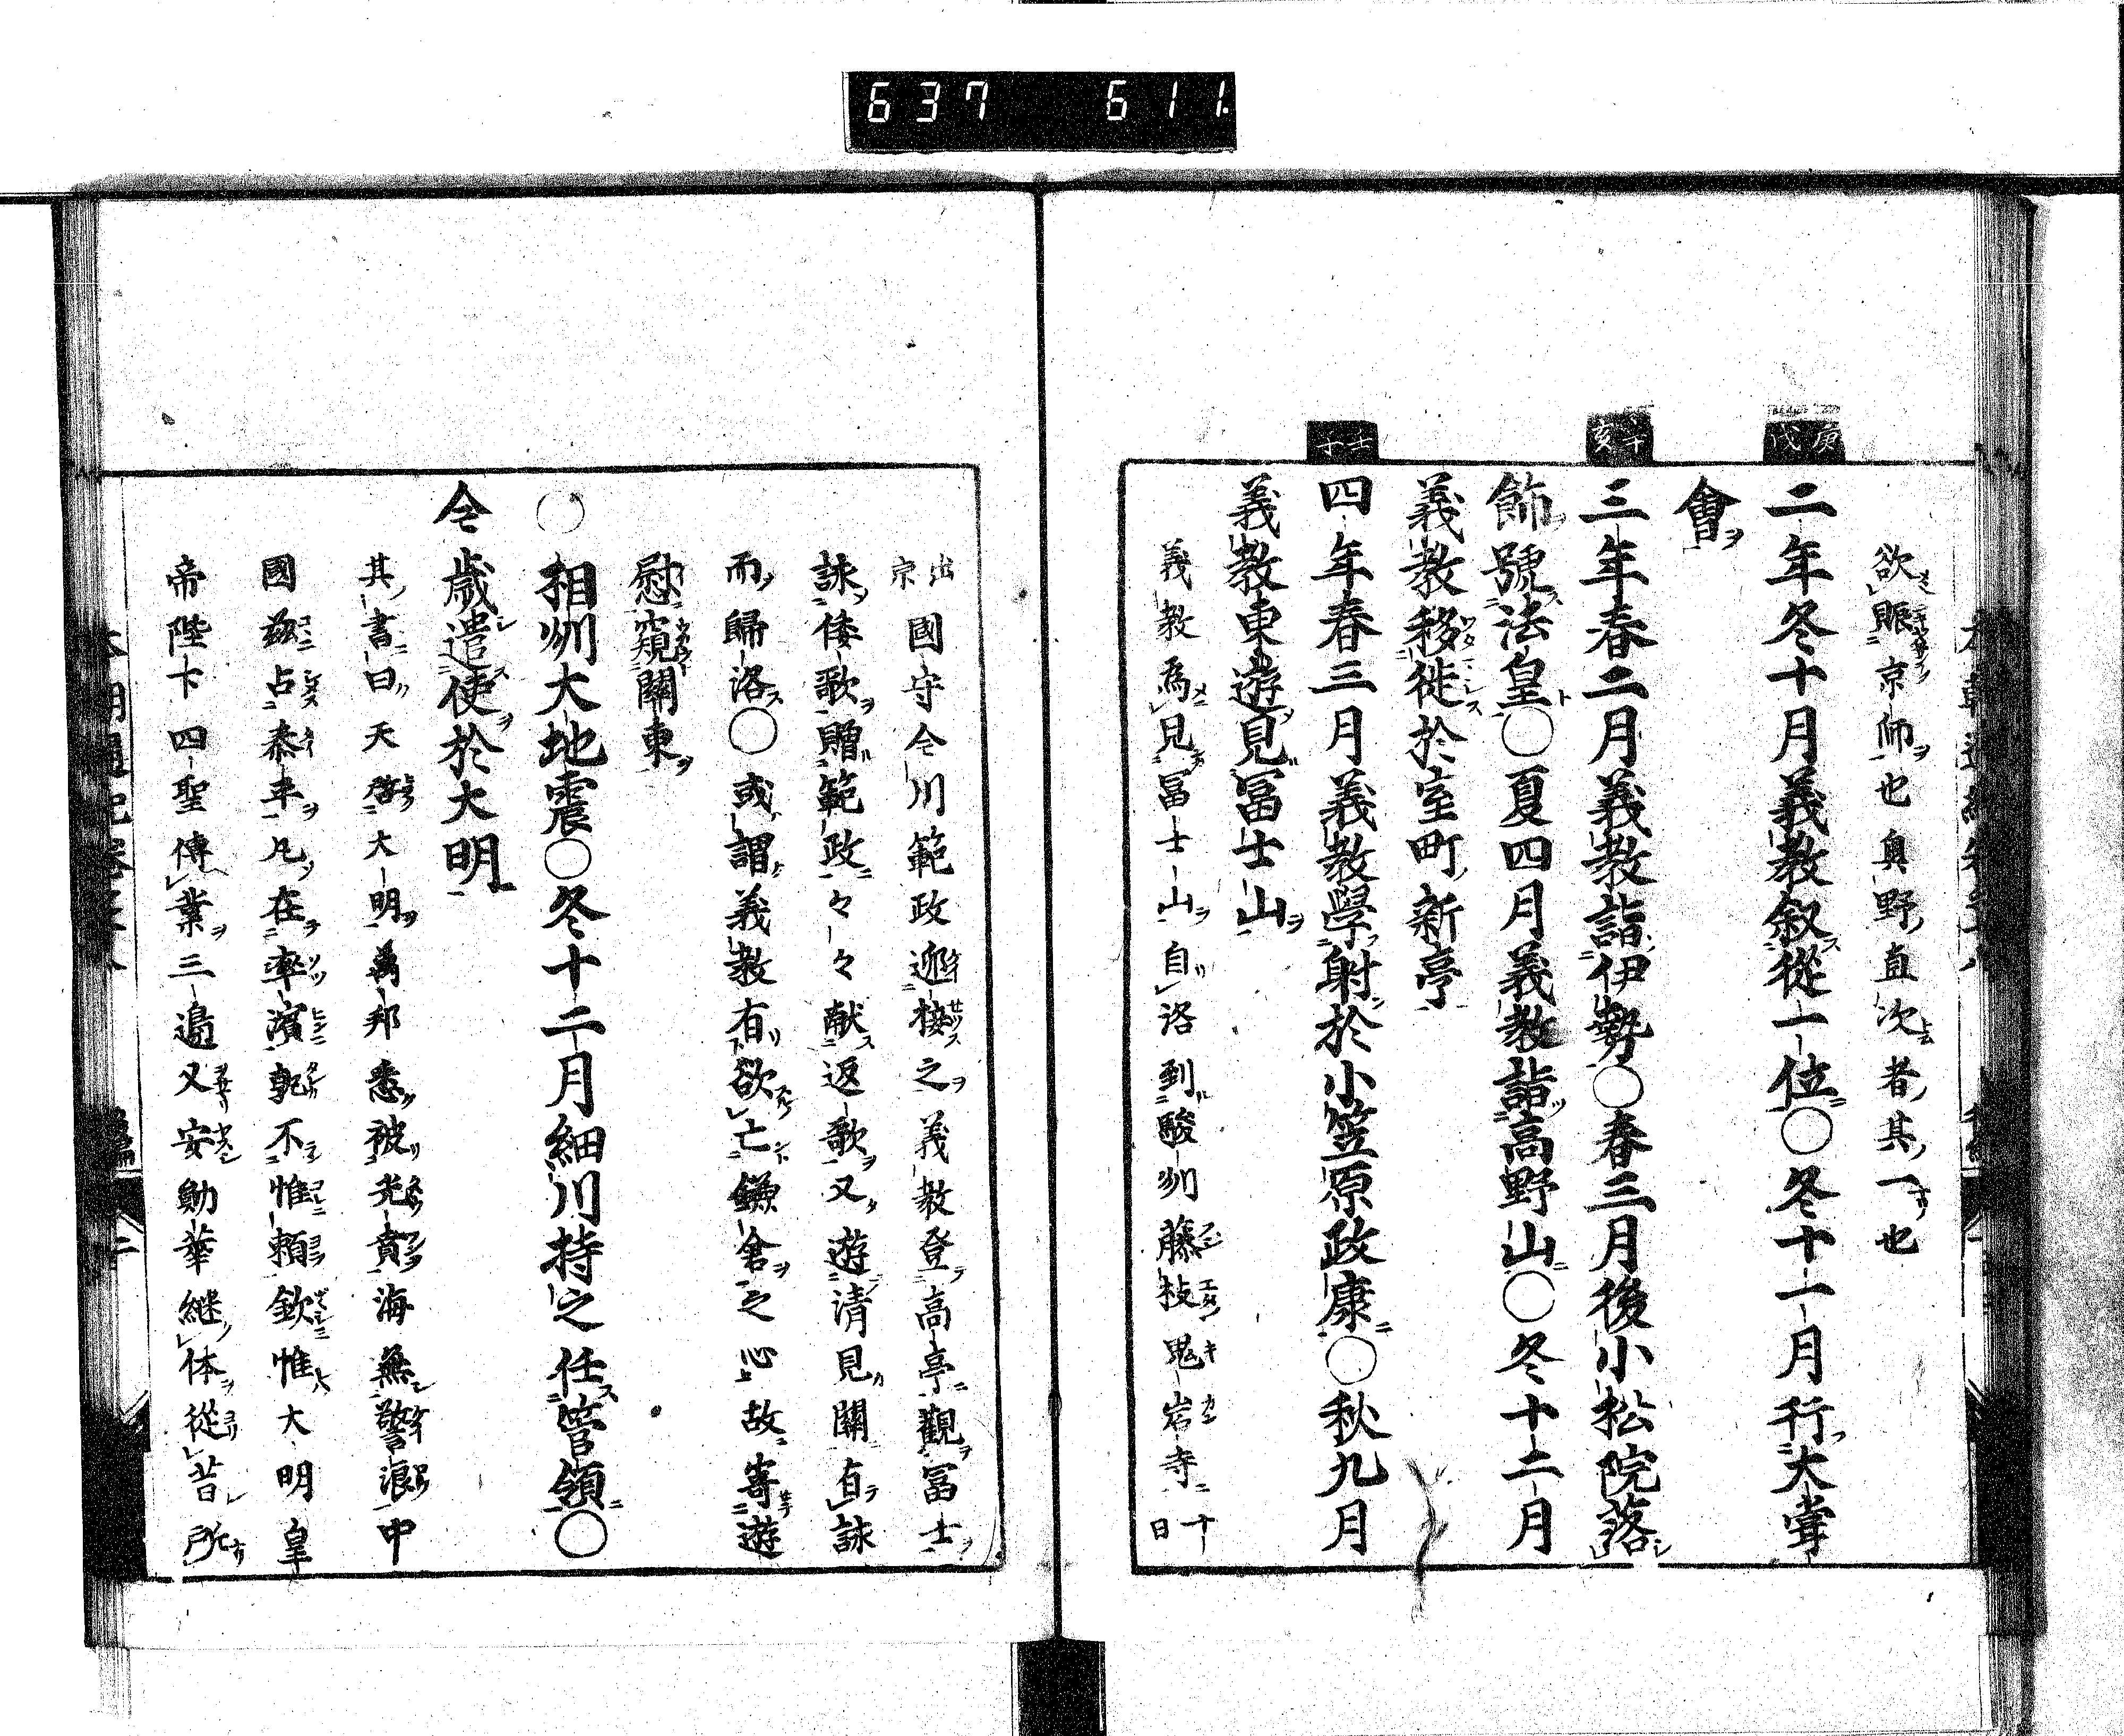 637 611.
欲賑京師也奥野直次者其一也
庚戌
二年冬十月義教叙從一位○冬十一月行大甞
會
辛亥
三年春二月義教詣伊勢○春三月後小松院落
飾號法皇○夏四月義教詣高野山○冬十二月
義教移徙於室町新亭
壬子
四年春三月義教學射於小笠原政康○秋九月
義教東遊見冨士山
義教爲見冨士山自洛到駿州藤枝鬼岩寺十日
出京國守今川範政迎接之義教登高亭觀冨士
詠倭歌贈範政々々献返歌又遊清見關有詠
而歸洛○或謂義教有欲亡鎌倉之心故寄遊
慰窺關東
○相州大地震○冬十二月細川持之任管領○
今歳遣使於大明
其書曰天啓大明萬邦悉被光賁海無警浪中
國茲占泰平凡在率濱孰不惟頼欽惟大明皇
帝陛下四聖傳業三邊乂安勛華継体從昔所